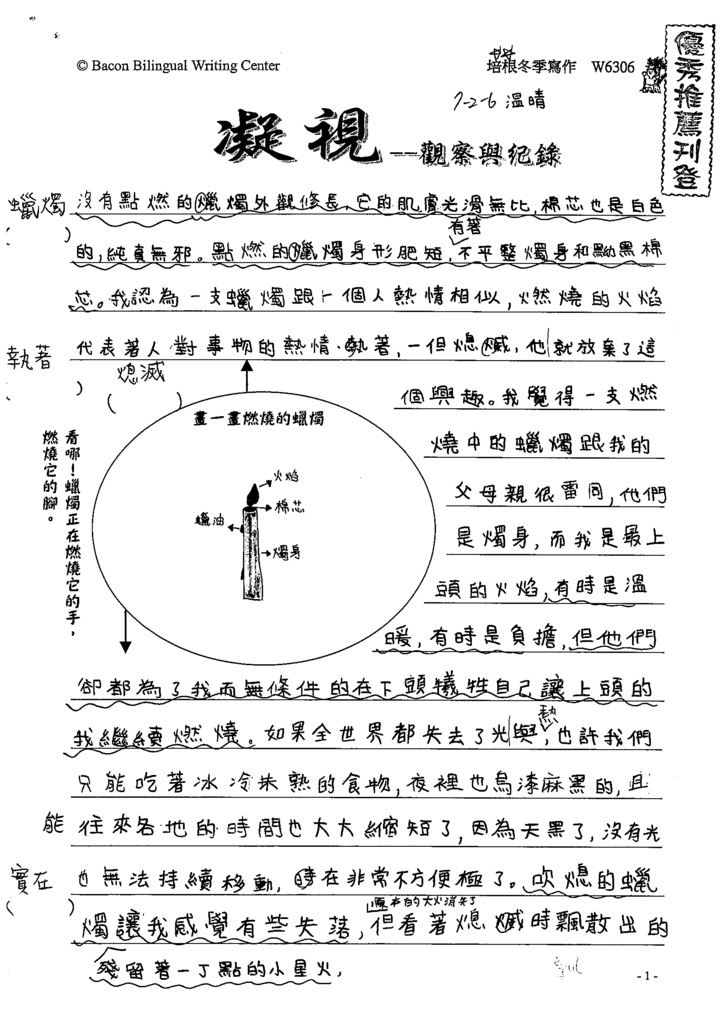 © Bacon Bilingual Writing Center
培根冬季寫作 W6306
優秀推薦刊登
7-2-6 溫晴
凝視——觀察與紀錄
蠟燭
( )
沒有點燃的蠟燭外觀修長,它的肌膚光滑無比,棉芯也是白色
的,純真無邪。點燃的蠟燭身形肥短,有著不平整燭身和黝黑棉
芯。我認為一支蠟燭跟一個人熱情相似,燃燒的火焰
執著
( )
代表著人對事物的熱情、執著,一但熄滅,他就放棄了這
熄滅
( )
個興趣。我覺得一支燃
燒中的蠟燭跟我的
父母親很雷同,他們
是燭身,而我是最上
頭的火焰,有時是溫
暖,有時是負擔,但他們
畫一畫燃燒的蠟燭
火焰
棉芯
蠟油
燭身
看哪!蠟燭正在燃燒它的手,
燃燒它的腳。
卻都為了我而無條件的在下頭犧牲自己讓上頭的
我繼續燃燒。如果全世界都失去了光與熱,也許我們
只能吃著冰冷未熟的食物,夜裡也烏漆麻黑的,且
能
往來各地的時間也大大縮短了,因為天黑了,沒有光
實在
( )
也無法持續移動,時在非常不方便極了。吹熄的蠟
燭讓我感覺有些失落,原本的大火消失了但看著熄滅時飄散出的
殘留著一丁點的小星火,
-1-